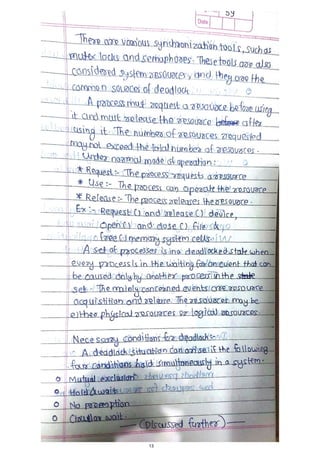 59
Date
There are various synchronization tools, such as
mutex locks and semaphores. These tools are also
considered system resources, and they are the
common sources of deadlock.
A process must request a resource before using
it and must release the resource before after
using it. The number of resources requested
may not exceed the total number of resources.
Under normal mode of operation:-
* Request:- The process requests a resource
* Use:- The process can operate the resource
* Release:- The process releases the resource.
Ex:- Request() and release() device,
Open() and close() file
Free() memory system calls
A set of processes is in a deadlocked state when
every process is in the waiting for an event that can
be caused only by another process in the state
set. The mainly concerned events are resource
acquisition and release. The resources may be
either physical resources or logical resources
Necessary conditions for deadlocks:-
A deadlock situation can arise if the following
four conditions hold simultaneously in a system.
Mutual exclusion
Hold & wait
No preemption
Circular wait.
(Discussed further)
13